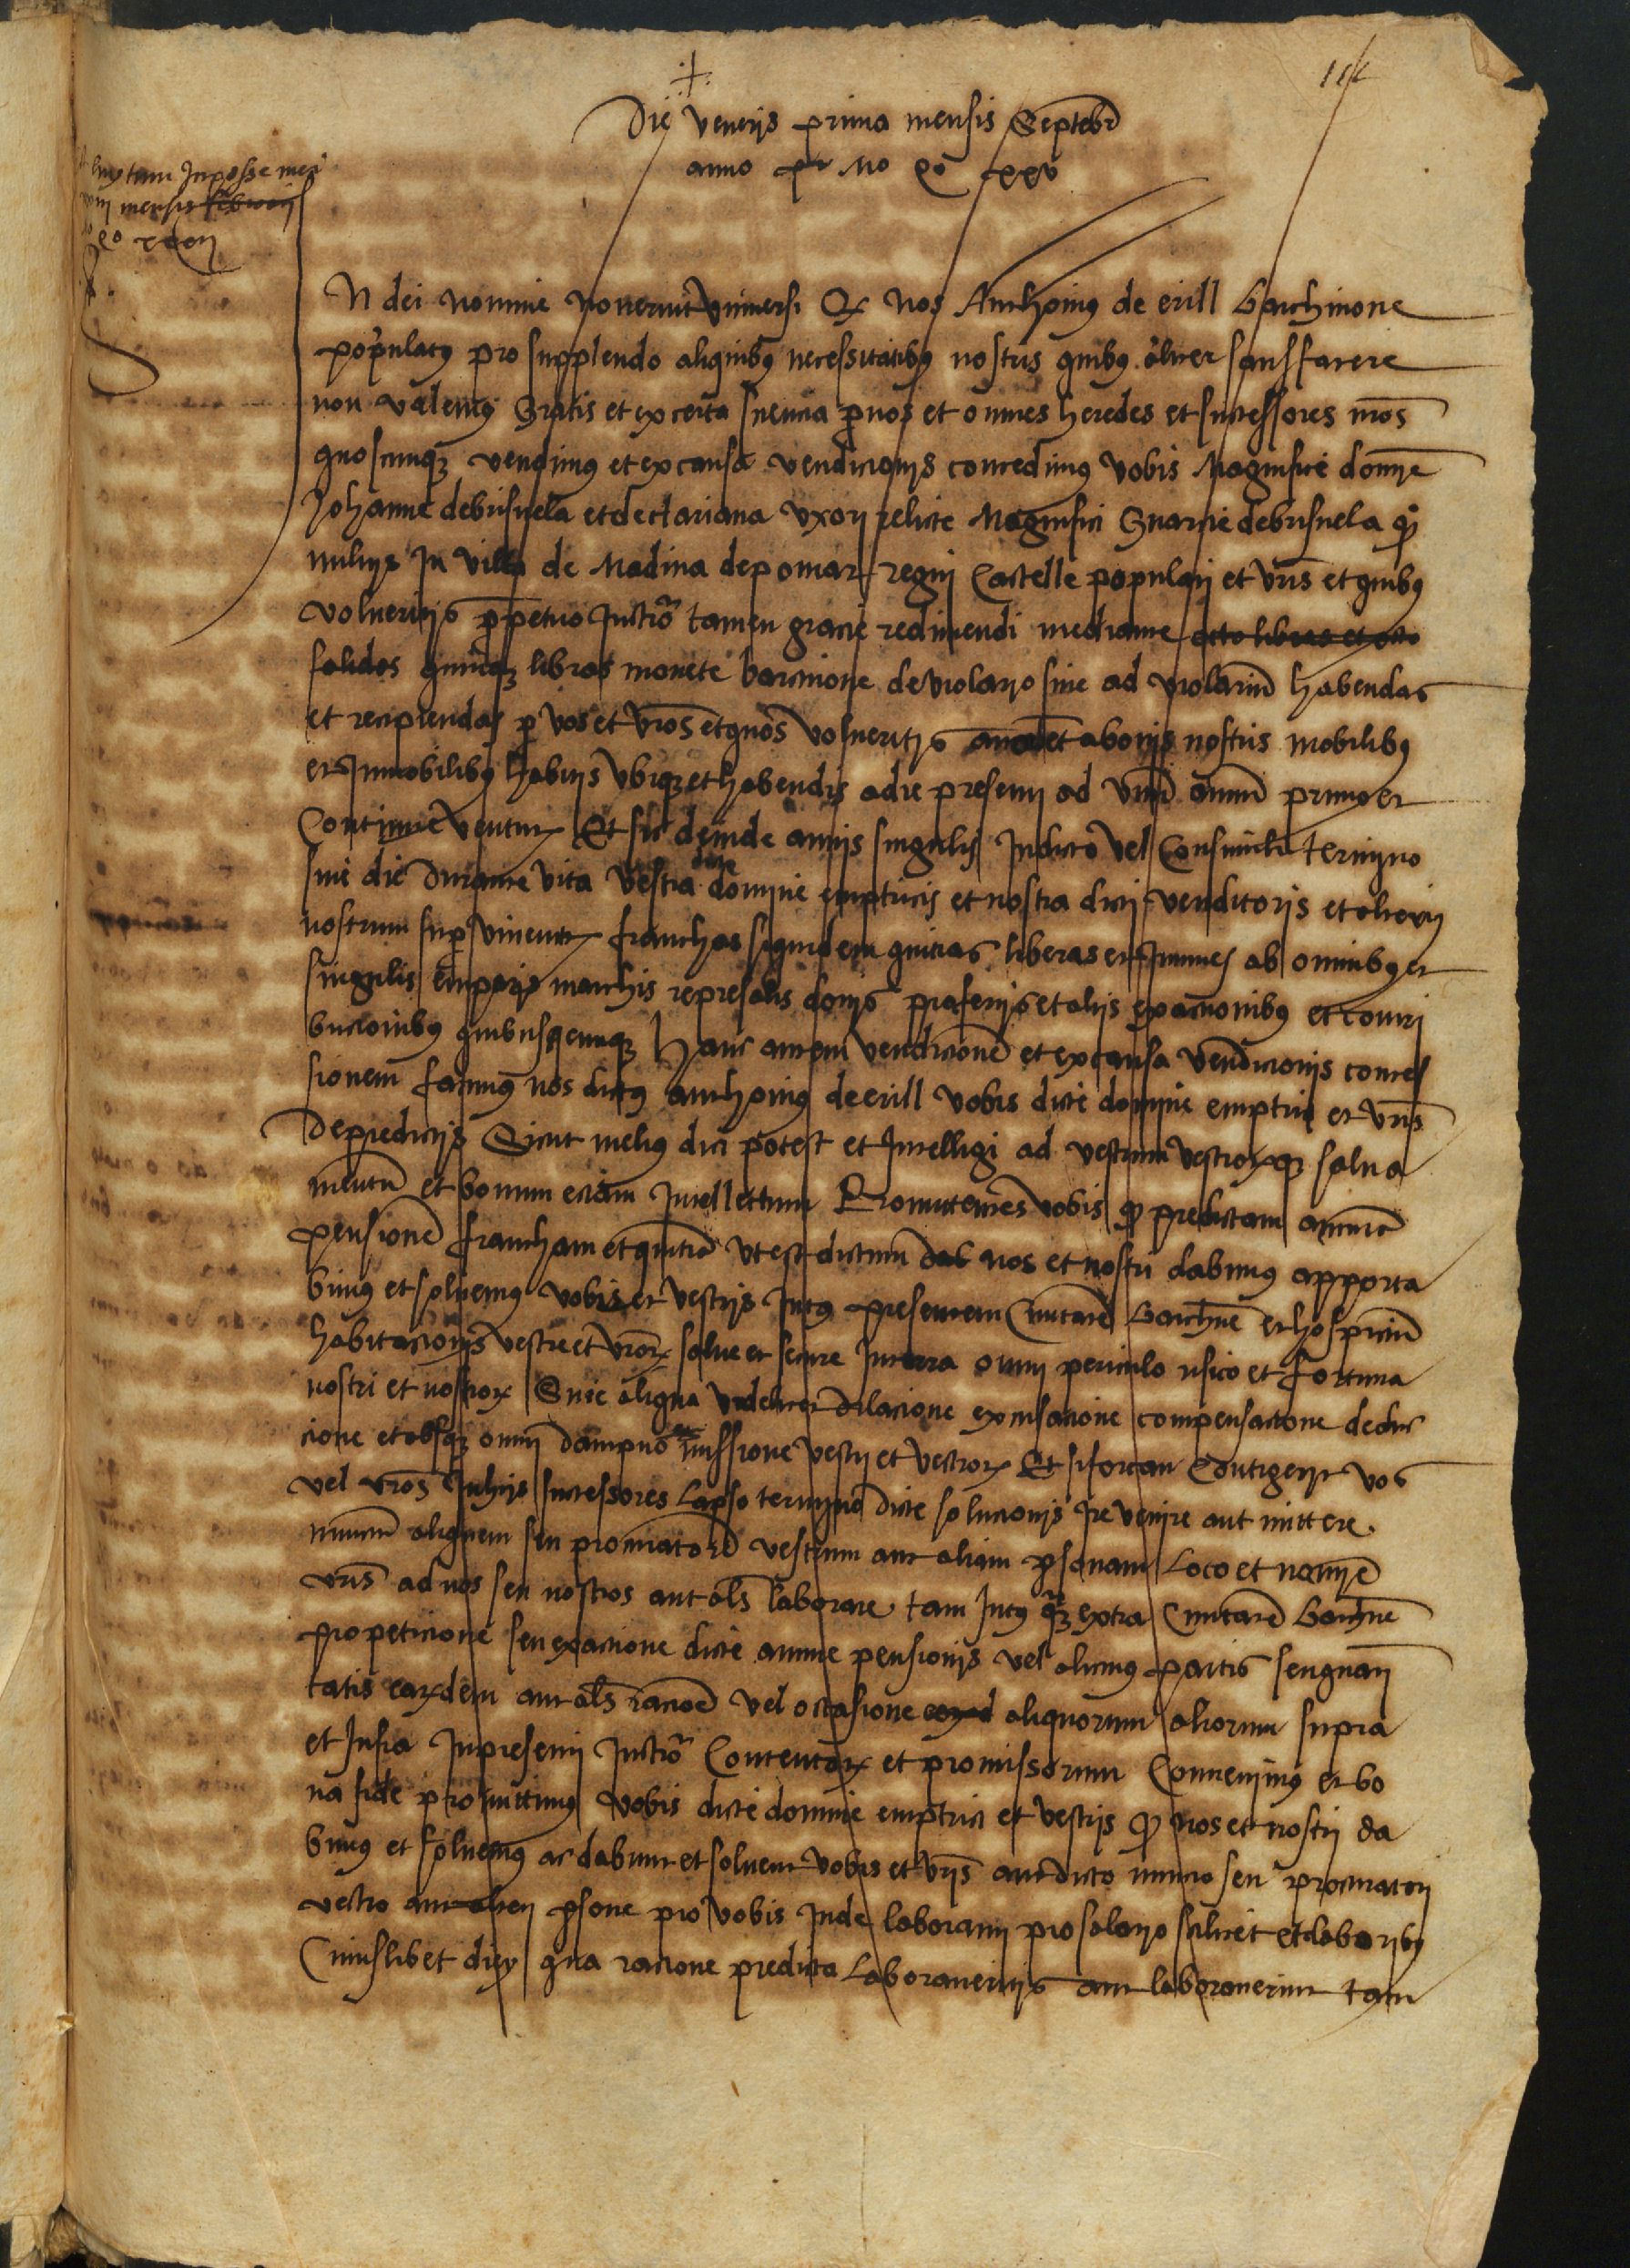 Die veneris prima mensis Septebr
anno pr Mo Do xxv
mensis
N dei nomine noverint universi Qx nos Anthonius de erill barchinone
populatus pro supplendo aliquibus necessitatibus nostris quibus aliter satisfacere
non valemus Gratis et ex certa sciencia per nos et omnes heredes et successores nros
quoscumque vendimus et ex causa vendicionis concedimus vobis Magnifice domine
Johanne de brisuela et de uxori relicte Magnifici Garcie de brisuela qo
militis In villa de Madina de pomar regni Castelle populati et vris et quibus
volueritis perpetuo Instro tamen gracie redimendi mediante octo libras et octo
solidos quinque libras monete barcinone de violario sive ad violarium habendas
et recipiendas per vos et vros et quos volueritis et a bonis nostris mobilibus
et Immobilibus habitis ubique et habendis a die presenti ad unum annum primo et
Continue ventur Et sic deinde annis singulis In dicto vel Consimili termino
sive die durante vita vestra dicte domine emptricis et nostra dicti venditoris et alterii
nostrum supervivent franchas siquidem quitias liberas et Immunes ab omnibus et
singulis emparis marchis represaliis donis et aliis exaccionibus et contri
bucionibus quibuscumque Hanc autem vendicione et ex causa vendicionis conces
sionem facimus nos dictus Anthonius de erill vobis dicte domine emptrici et vris
De predictis Sicut melius dici potest et Intelligi ad vestrum vestrorumque salva
mentum et bonum eciam Intellectum Promittentes vobis quod predictam annuam
pensione francham et quitiam ut est dictum dab nos et nostri dabimus apporta
bimus et solvemus vobis et vestris Intus presentem Civitate Barchne et hospicium
habitacionis vestre et vror salve et secure In terra omni periculo risico et fortuna
nostri et nostror Sine aliqua videlicet dilacione excusacione compensacione deduc
cione et absque omni dampno et missione vestri et vestror Et si forsan Contigerit vos
vel vros In hiis successores Lapso termino dicte solucionis Ire venire aut mittere
nuncium aliquem seu procuratore vestrum aut aliam personam Loco et nomine
vris ad nos seu nostros aut als laborare tam Intus qre extra Civitate Barchne
pro peticione seu exaccione dicte annue pensionis vel alicuius partis seu quan
tatis earumdem aut als racione vel occasione aliquorum aliorum supra
et Infra In presenti Instro Contentor et promissorum Convenimus et bo
na fide promittimus vobis dicte domine emptrici et vestris quod nos et nostri da
bimus et solvemus ac dabunt et solvent vobis et vris aut dicto nuncio seu procuratori
vestro aut alteri persone pro vobis Inde laboranti pro salario scilicet et laboribus
Cuiuslibet diei qua racione predicta Laboraveritis aut laboraverint tam